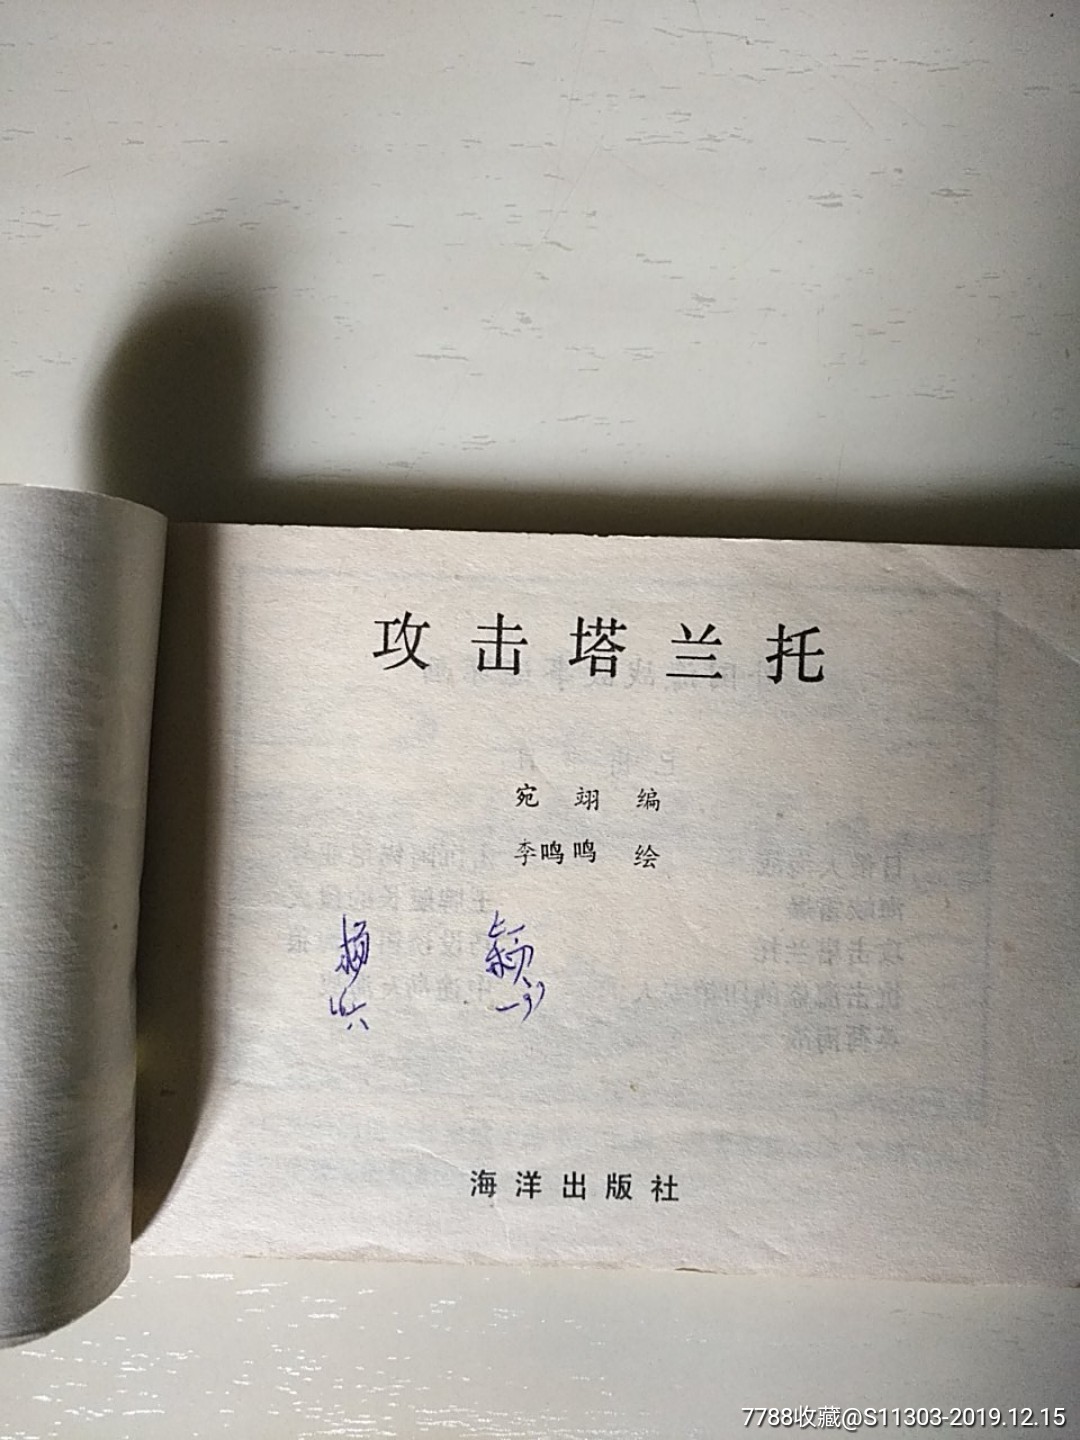 攻击塔兰托
宛翊 编
李鸣鸣 绘
杨 颖
海洋出版社
7788收藏@S11303-2019.12.15